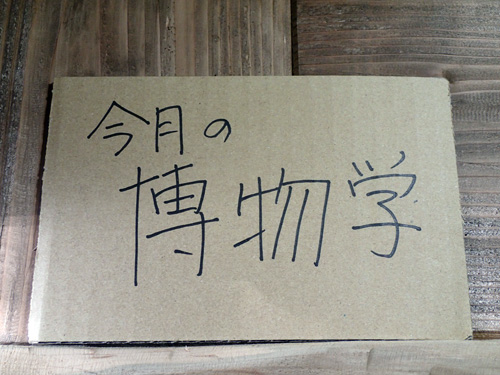 今月の
博物学